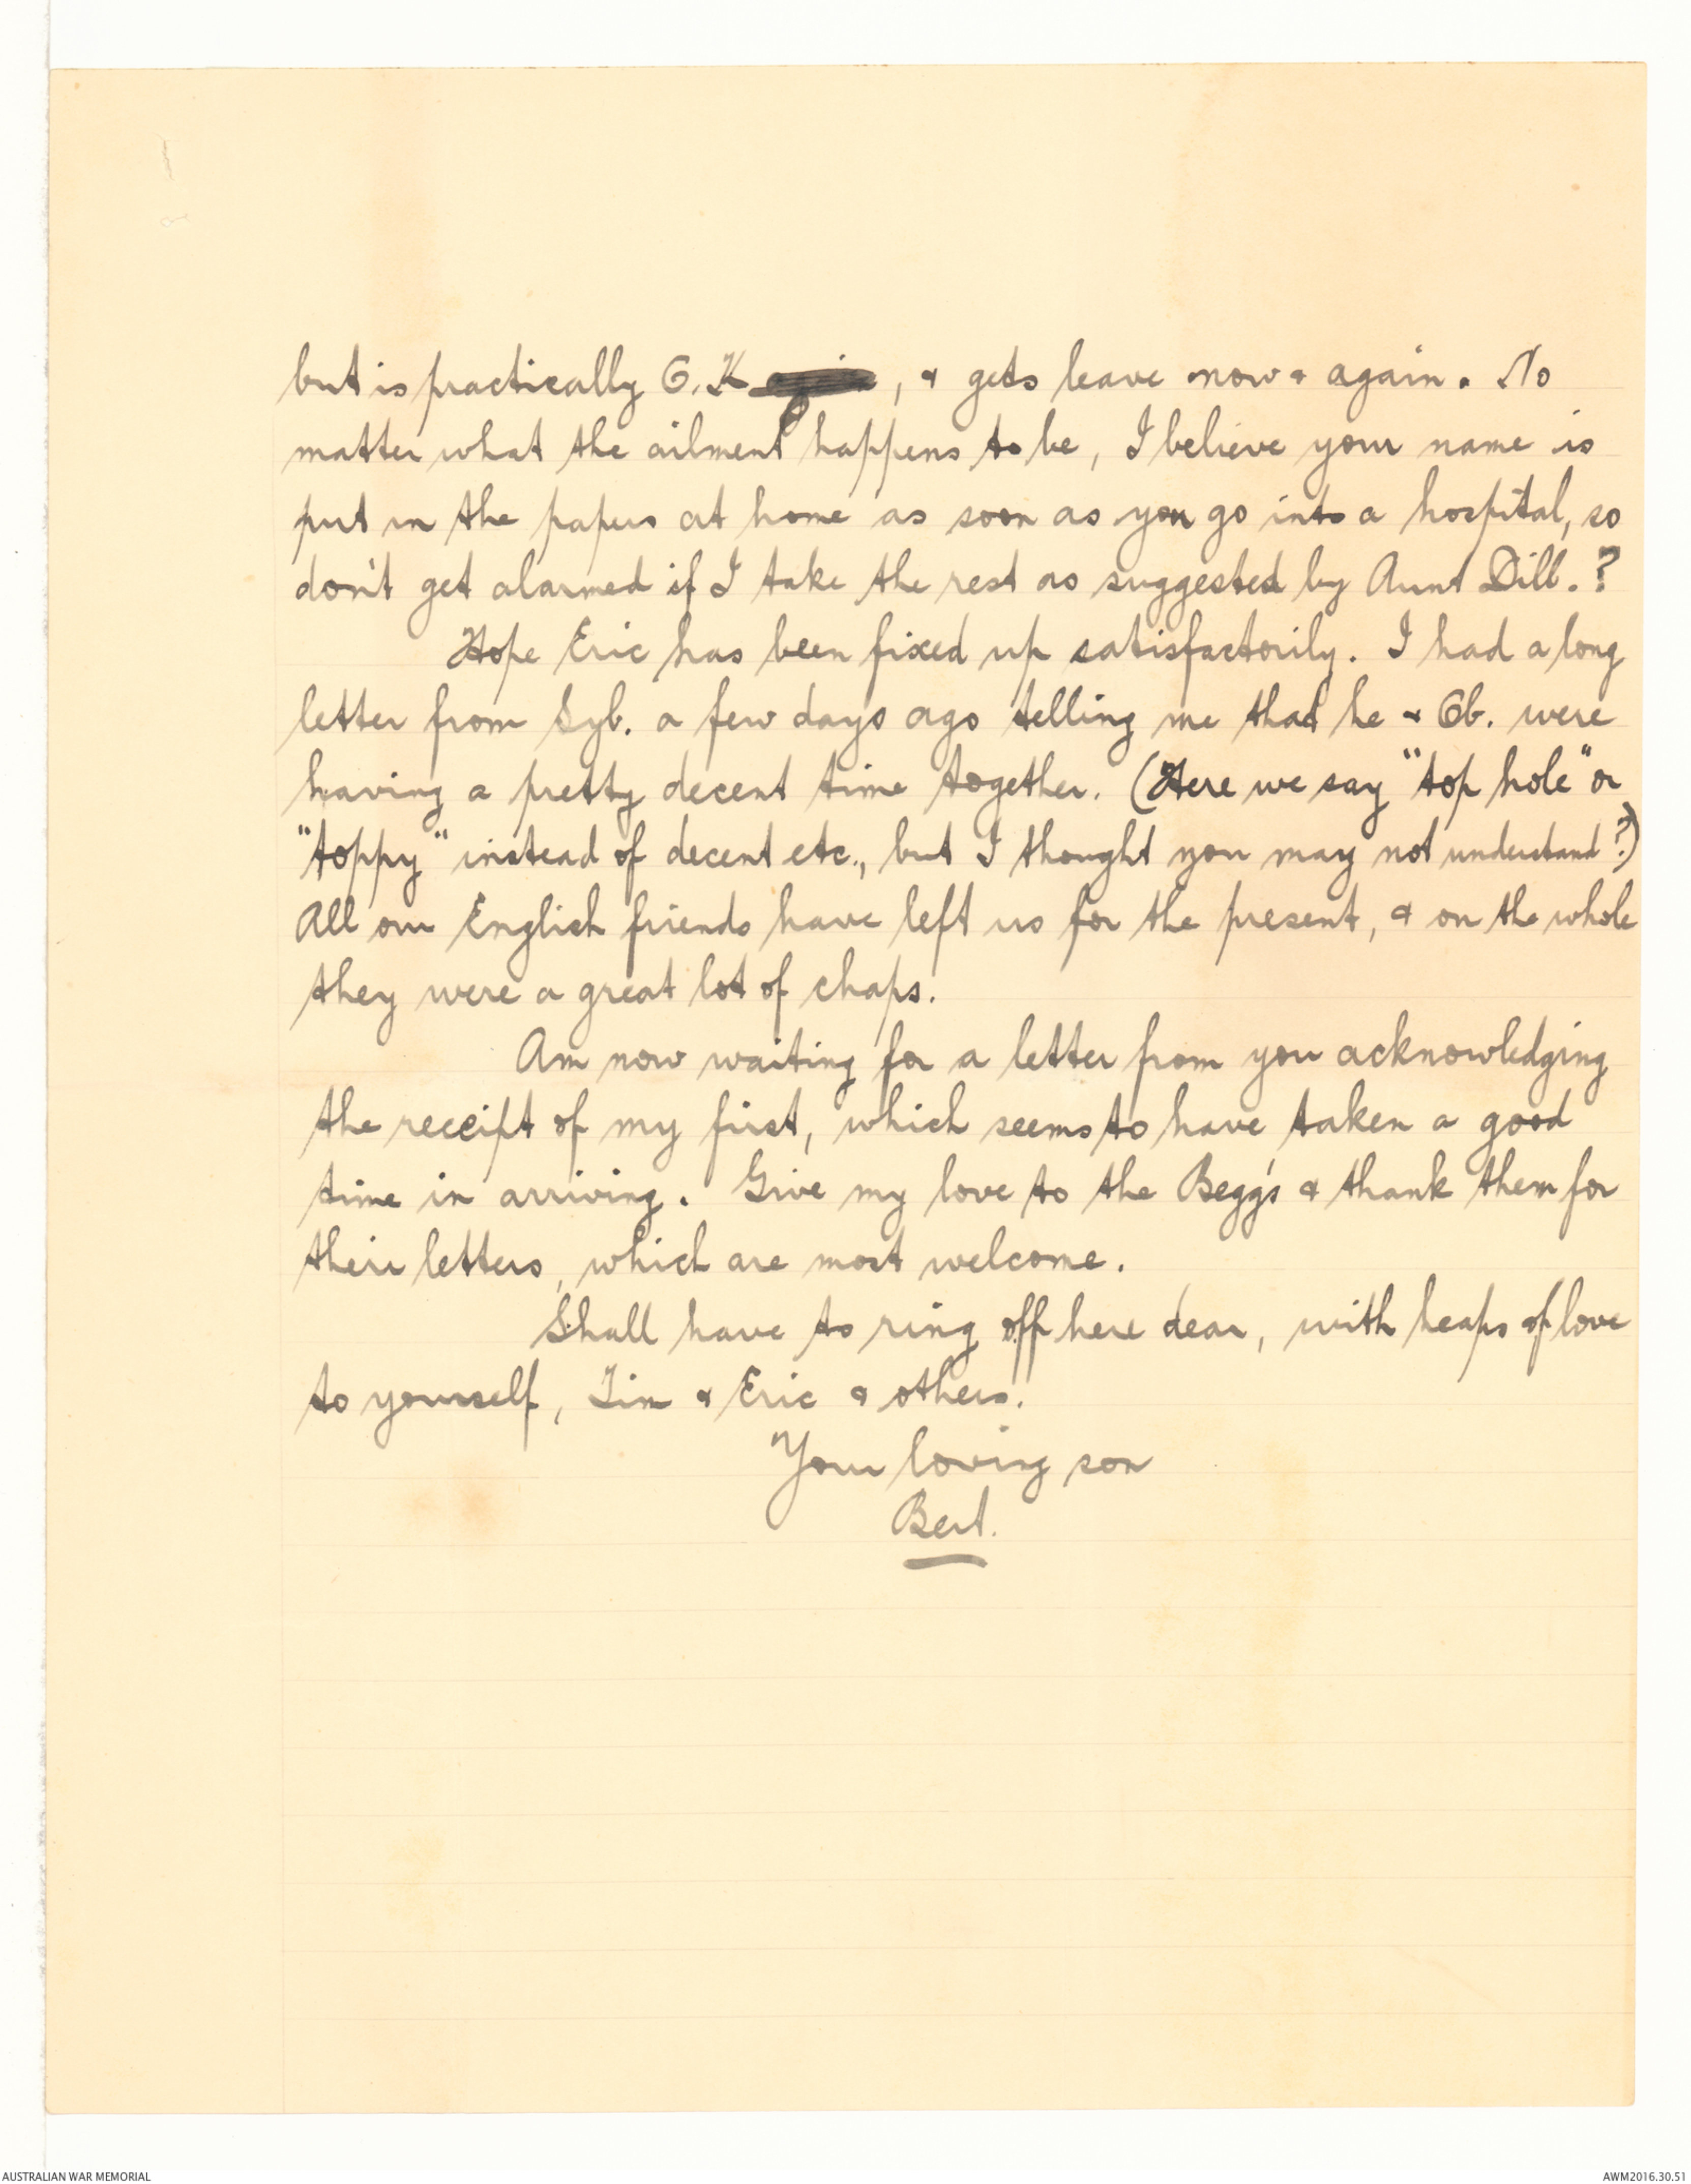 but is practically O.K , & gets leave now & again. No
matter what the ailment happens to be, I believe your name is
put in the papers at home as soon as you go into a hospital, so
don't get alarmed if I take the rest as suggested by Aunt Dill.?
Hope Eric has been fixed up satisfactorily. I had a long
letter from Syb. a few days ago telling me that he & Ob. were
having a pretty decent time together. (Here we say "top hole" or
"toppy" instead of decent etc., but I thought you may not understand?)
All our English friends have left us for the present, & on the whole
they were a great lot of chaps.
Am now waiting for a letter from you acknowledging
the receipt of my first, which seems to have taken a good
time in arriving. Give my love to the Begg's & thank them for
their letters, which are most welcome.
Shall have to ring off here dear, with heaps of love
to yourself, Jim & Eric & others.
Your loving son
Bert.
AUSTRALIAN WAR MEMORIAL
AWM2016.30.51